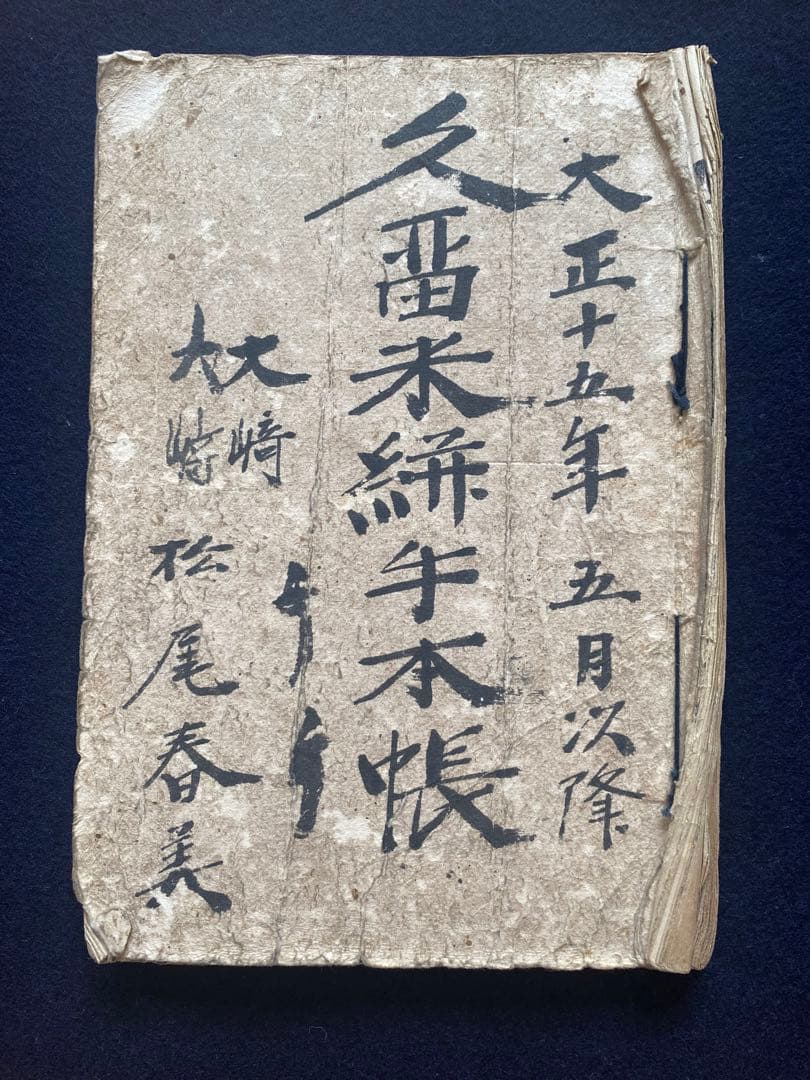 大正十五年 五月次降
久畱米絣手本帳
大﨑
大﨑 松尾春美